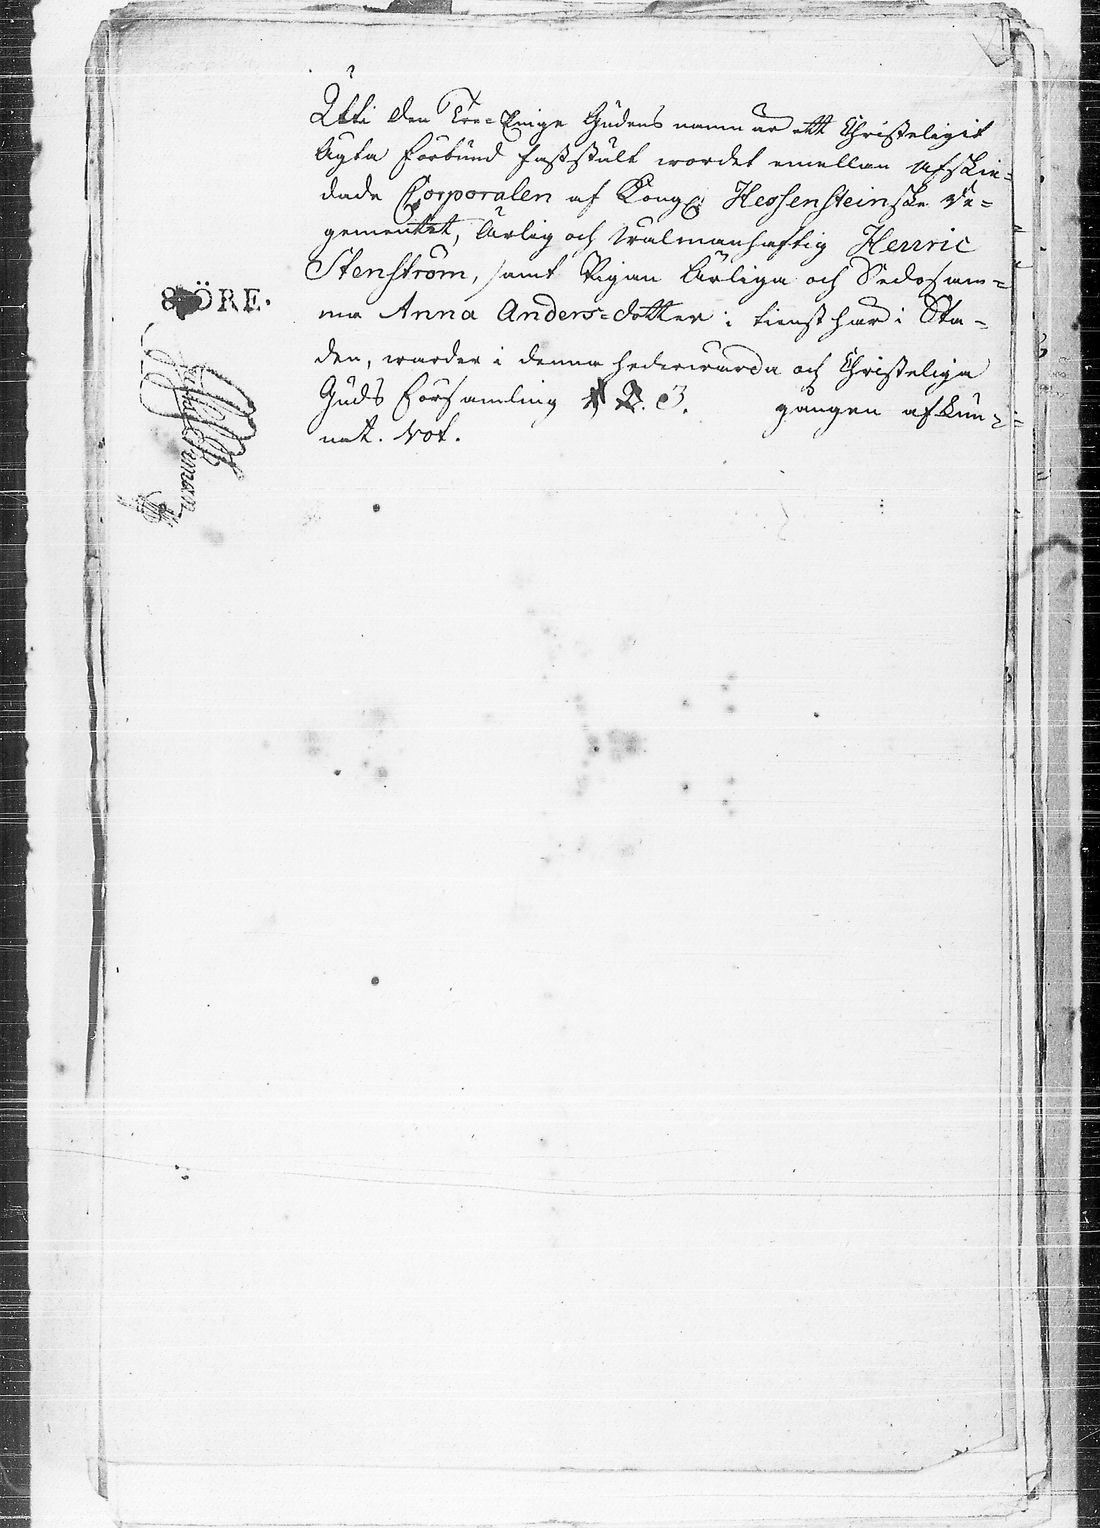 Uti den Tre-Eniga Gudens namn är ett Christeligit
Ägta förbund fastställt wordet emellan afskie=
dade Corporalen af Kongl: Hessensteinska Re=
gementet, Ärlig och wälmanhaftig Henric
Stenström, samt Pigan Ärliga och Sedosam=
ma Anna Anders=dotter i tienst här i Sta=
den, warder i denna hederwärda och Christeliga
Guds församling 1 2. 3. gången afkun=
nat. Not.
8 ÖRE.